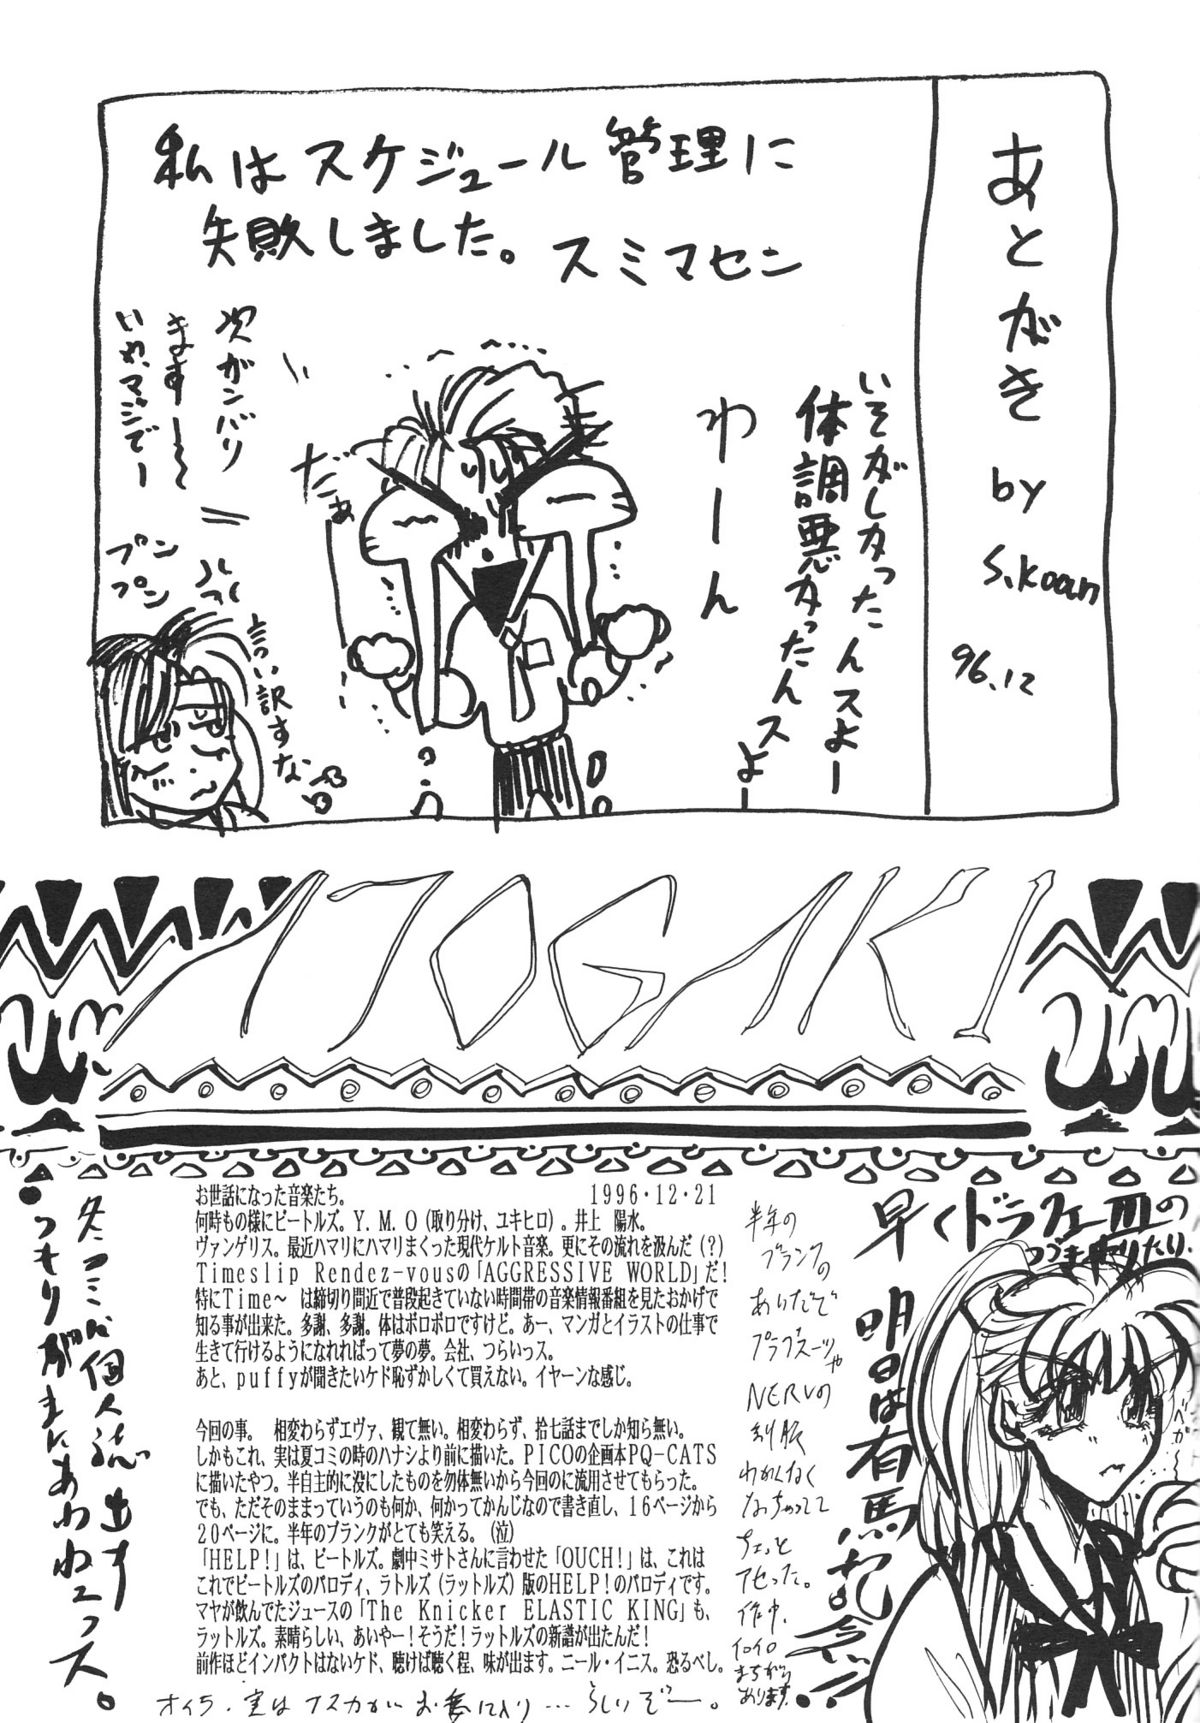 あとがき by S.Koan
96.12
私はスケジュール管理に
失敗しました。スミマセン
いそがしかったんスよー
体調悪かったんスよー
わーん
だぁー
次ガンバリ
ます〜〜
いや、マジでー
プン
プン
言い訳すな
ATOGAKI
早くドラクエⅢの
つづきやりたり、
明日は有馬記念!!
半年の
ブランクの
あいだで
プラグスーツや
NERVの
制服
わかんなく
なっちゃってて
ちょっと
アセった。
作中、
イロイロ
まちがい
あります。
お世話になった音楽たち。　1996・12・21
何時もの様にビートルズ。Y.M.O（取り分け、ユキヒロ）。井上 陽水。
ヴァンゲリス。最近ハマリにハマりまくった現代ケルト音楽。更にその流れを汲んだ（？）
Timeslip Rendez-vousの「AGGRESSIVE WORLD」だ！
特にTime〜 は締切り間近で普段起きていない時間帯の音楽情報番組を見たおかげで
知る事が出来た。多謝、多謝。体はボロボロですけど。あー、マンガとイラストの仕事で
生きて行けるようになれればって夢の夢。会社、つらいっス。
あと、puffyが聞きたいケド恥ずかしくて買えない。イヤーンな感じ。
今回の事。　相変わらずエヴァ、観て無い。相変わらず、拾七話までしか知ら無い。
しかもこれ、実は夏コミの時のハナシより前に描いた。PICOの企画本PQ-CATS
に描いたやつ。半自主的に没にしたものを勿体無いから今回のに流用させてもらった。
でも、ただそのままっていうのも何か、何かってかんじなので書き直し、16ページから
20ページに。半年のブランクがとても笑える。（泣）
「HELP！」は、ビートルズ。劇中ミサトさんに言わせた「OUCH！」は、これは
これでビートルズのパロディ、ラトルズ（ラットルズ）版のHELP！のパロディです。
マヤが飲んでたジュースの「The Knicker ELASTIC KING」も、
ラットルズ。素晴らしい、あいやー！そうだ！ラットルズの新譜が出たんだ！
前作ほどインパクトはないケド、聴けば聴く程、味が出ます。ニール・イニス。恐るべし。
オイラ、実はアスカがお気に入り…らしいぞー。
冬コミに個人誌出す
つもりがまにあわねェっス。